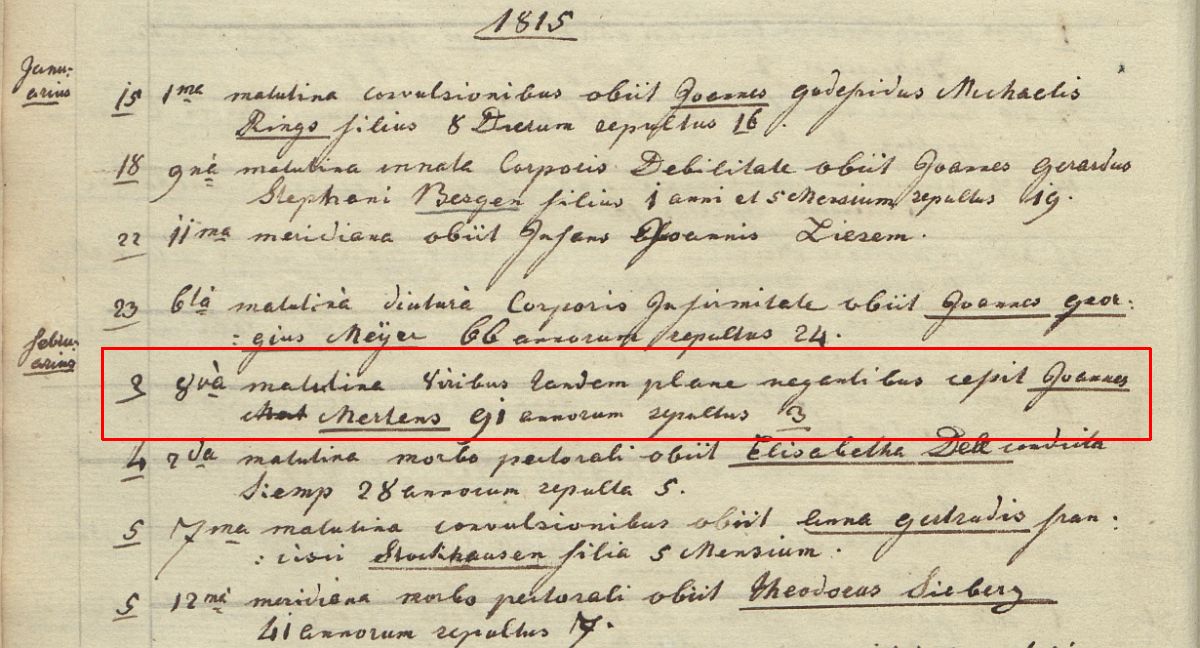 1815
Janu:
arius
15 1ma matutina convulsionibus obiit Joannes godefridus Michaelis
Rings filius 8 Dierum sepultus 16.
18 9nà matutina innata Corporis Debilitate obiit Joannes Gerardus
Stephani Bergen filius 1 anni et 5 Mensium sepultus 19.
22 11ma meridiana obiit Infans Joannis Liesem.
23 6tà matutinà diuturà Corporis Infirmitate obiit Joannes geor:
: gius Meÿer 66 annorum sepultus 24.
Febru:
arius
3 8và matutina Viribus tandem plane negantibus cessit Joannes
Mertens 91 annorum sepultus 3
4 2da matutina morbo pectorali obiit Elisabetha Dell conducta
Siemp 28 annorum sepulta 5.
5 7ma matutina convulsionibus obiit anna gertrudis fran:
: cisci Stockhausen filia 5 Mensium.
5 12ma meridiana morbo pectorali obiit Theodorus Sieberz
41 annorum sepultus 7.